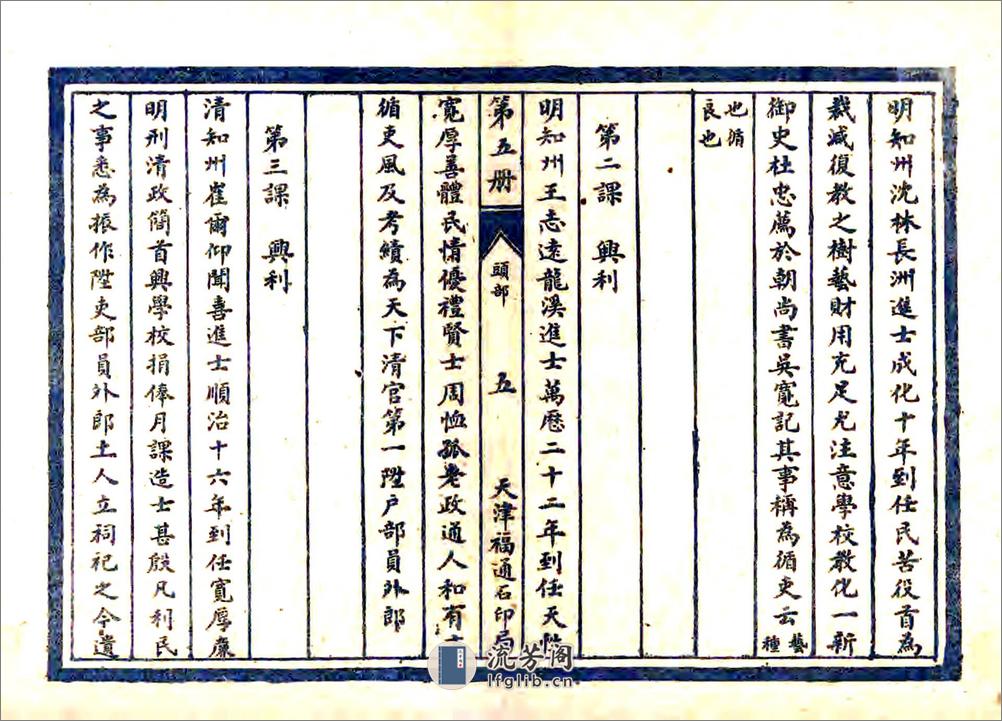 明知州沈林長洲進士成化十年到任民苦役首為
裁減復教之樹藝財用充足尤注意學校教化一新
御史杜忠薦於朝尚書吳寬記其事稱為循吏云藝種
也循
良也
第二課 興利
明知州王志遠龍溪進士萬曆二十二年到任天性
第五册 頭部 五 天津福通石印局
寬厚善體民情優禮賢士周恤孤老政通人和有
循吏風及考績為天下清官第一陞户部員外郎
第三課 興利
清知州崔爾仰聞喜進士順治十六年到任寬厚廉
明刑清政簡首興學校捐俸月課造士甚殷凡利民
之事悉為振作陞吏部員外郎土人立祠祀之今遺
流芳阁
lfglib.cn